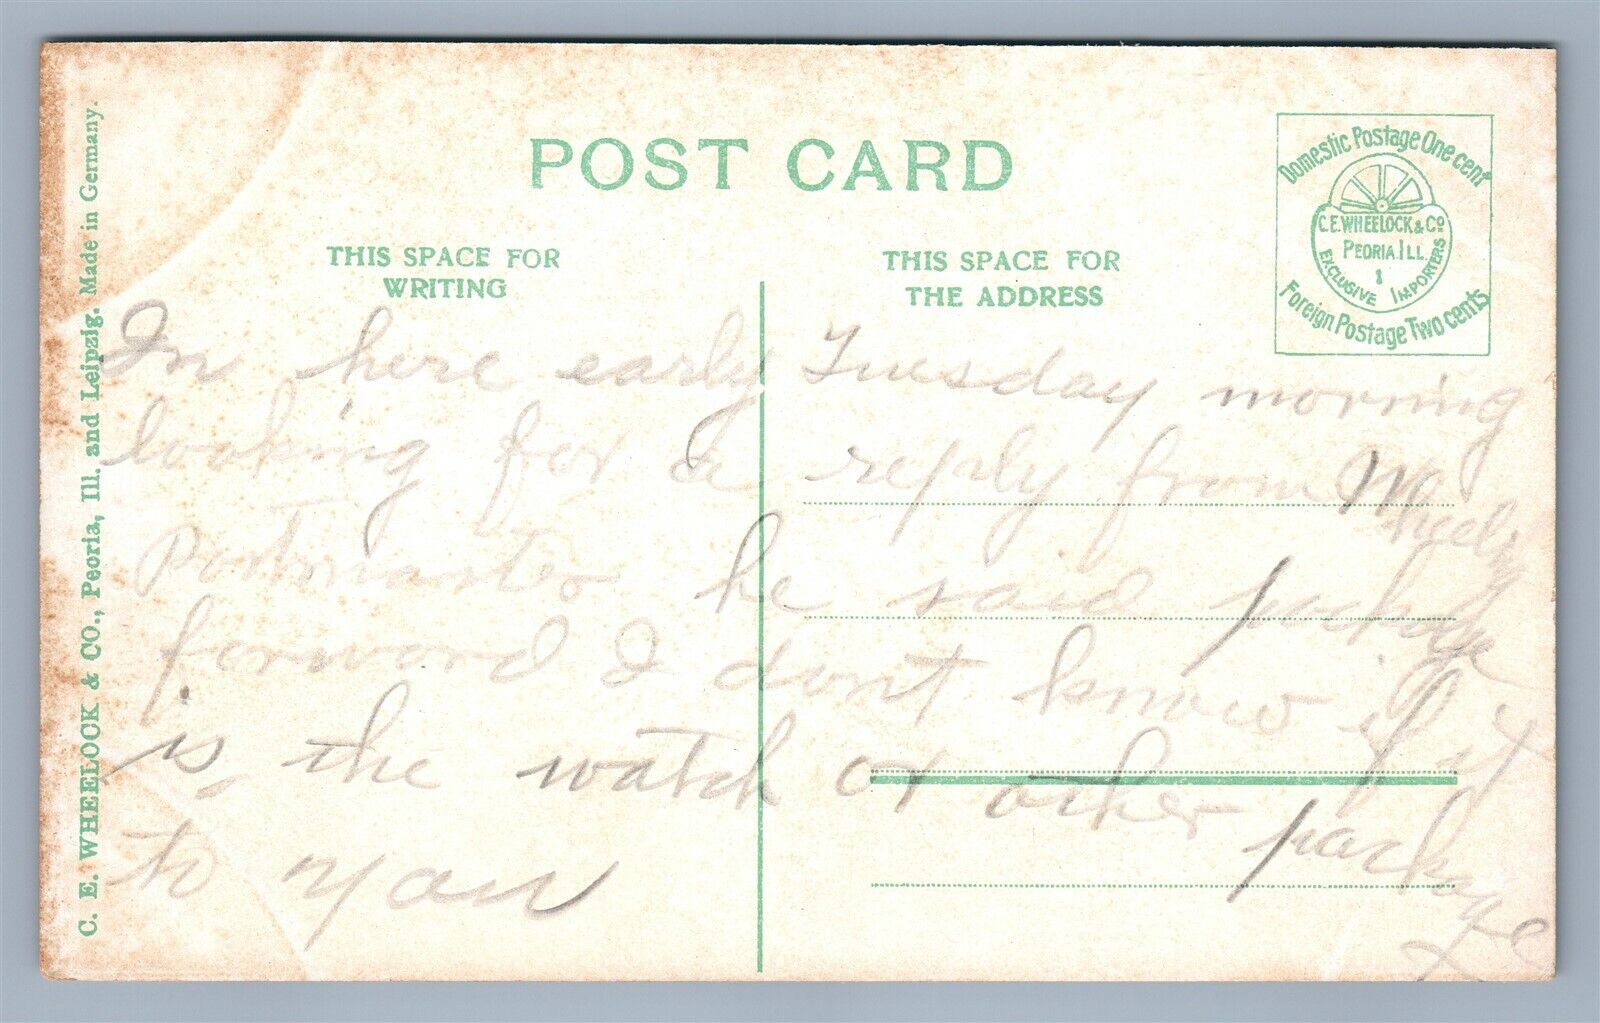 POST CARD
THIS SPACE FOR
WRITING
THIS SPACE FOR
THE ADDRESS
Domestic Postage One cent
C.E. WHEELOCK & Co
PEORIA. ILL.
EXCLUSIVE IMPORTERS
Foreign Postage Two cents
C. E. WHEELOCK & CO., Peoria, Ill. and Leipzig. Made in Germany.
In here early Tuesday morning
looking for a reply from
Postmaster he said package
forword I dont know if it
is the watch or other package
to you